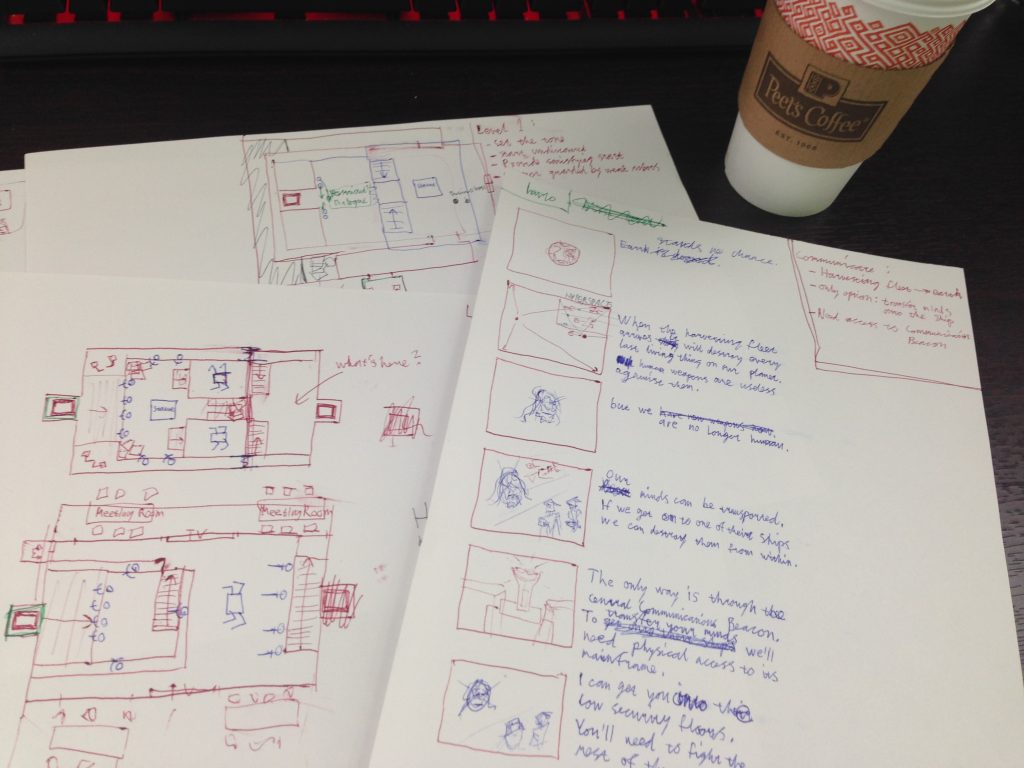 Peet's Coffee
EST. 1966
Level 1:
- set the tone
- Provide satisfying
guarded by weak robots
Dialogue
Intro
Earth stands no chance.
HYPERSPACE
When the harvesting fleet
arrives will destroy every
last living thing on our planet.
human weapons are useless
against them.
but we
are no longer human.
Our minds can be transported.
If we get onto one of their ships
we can destroy them from within.
The only way is through the
Central Communications Beacon.
To transfer your minds we'll
need physical access to its
mainframe.
I can get you into the
low security floors.
You'll need to fight the
most of the
Communicate:
- Harvesting fleet → Earth
- Only option: transfer minds
onto the ship
- Need access to Communication
Beacon
what's here?
Meeting Room
Meeting Room
TV
TV